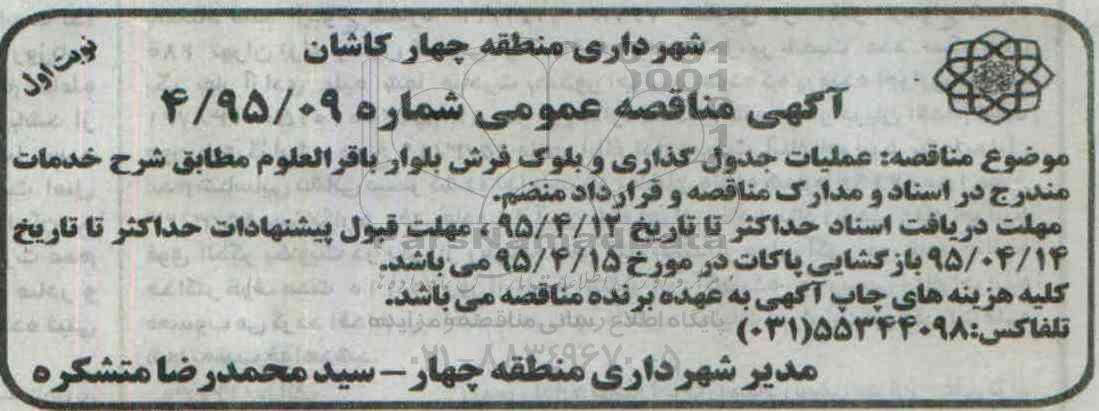 نوبت اول
شهرداری منطقه چهار کاشان
آگهی مناقصه عمومی شماره ۴/۹۵/۰۹
موضوع مناقصه: عملیات جدول گذاری و بلوک فرش بلوار باقرالعلوم مطابق شرح خدمات
مندرج در اسناد و مدارک مناقصه و قرارداد منضم.
مهلت دریافت اسناد حداکثر تا تاریخ ۹۵/۴/۱۲ ، مهلت قبول پیشنهادات حداکثر تا تاریخ
۹۵/۰۴/۱۴ بازگشایی پاکات در مورخ ۹۵/۴/۱۵ می باشد.
کلیه هزینه های چاپ آگهی به عهده برنده مناقصه می باشد.
تلفاکس:۵۵۳۴۴۰۹۸(۰۳۱)
مدیر شهرداری منطقه چهار – سید محمدرضا متشکره
ParsNamadData
۰۲۱-۸۸۳۴۹۶۷۰-۵